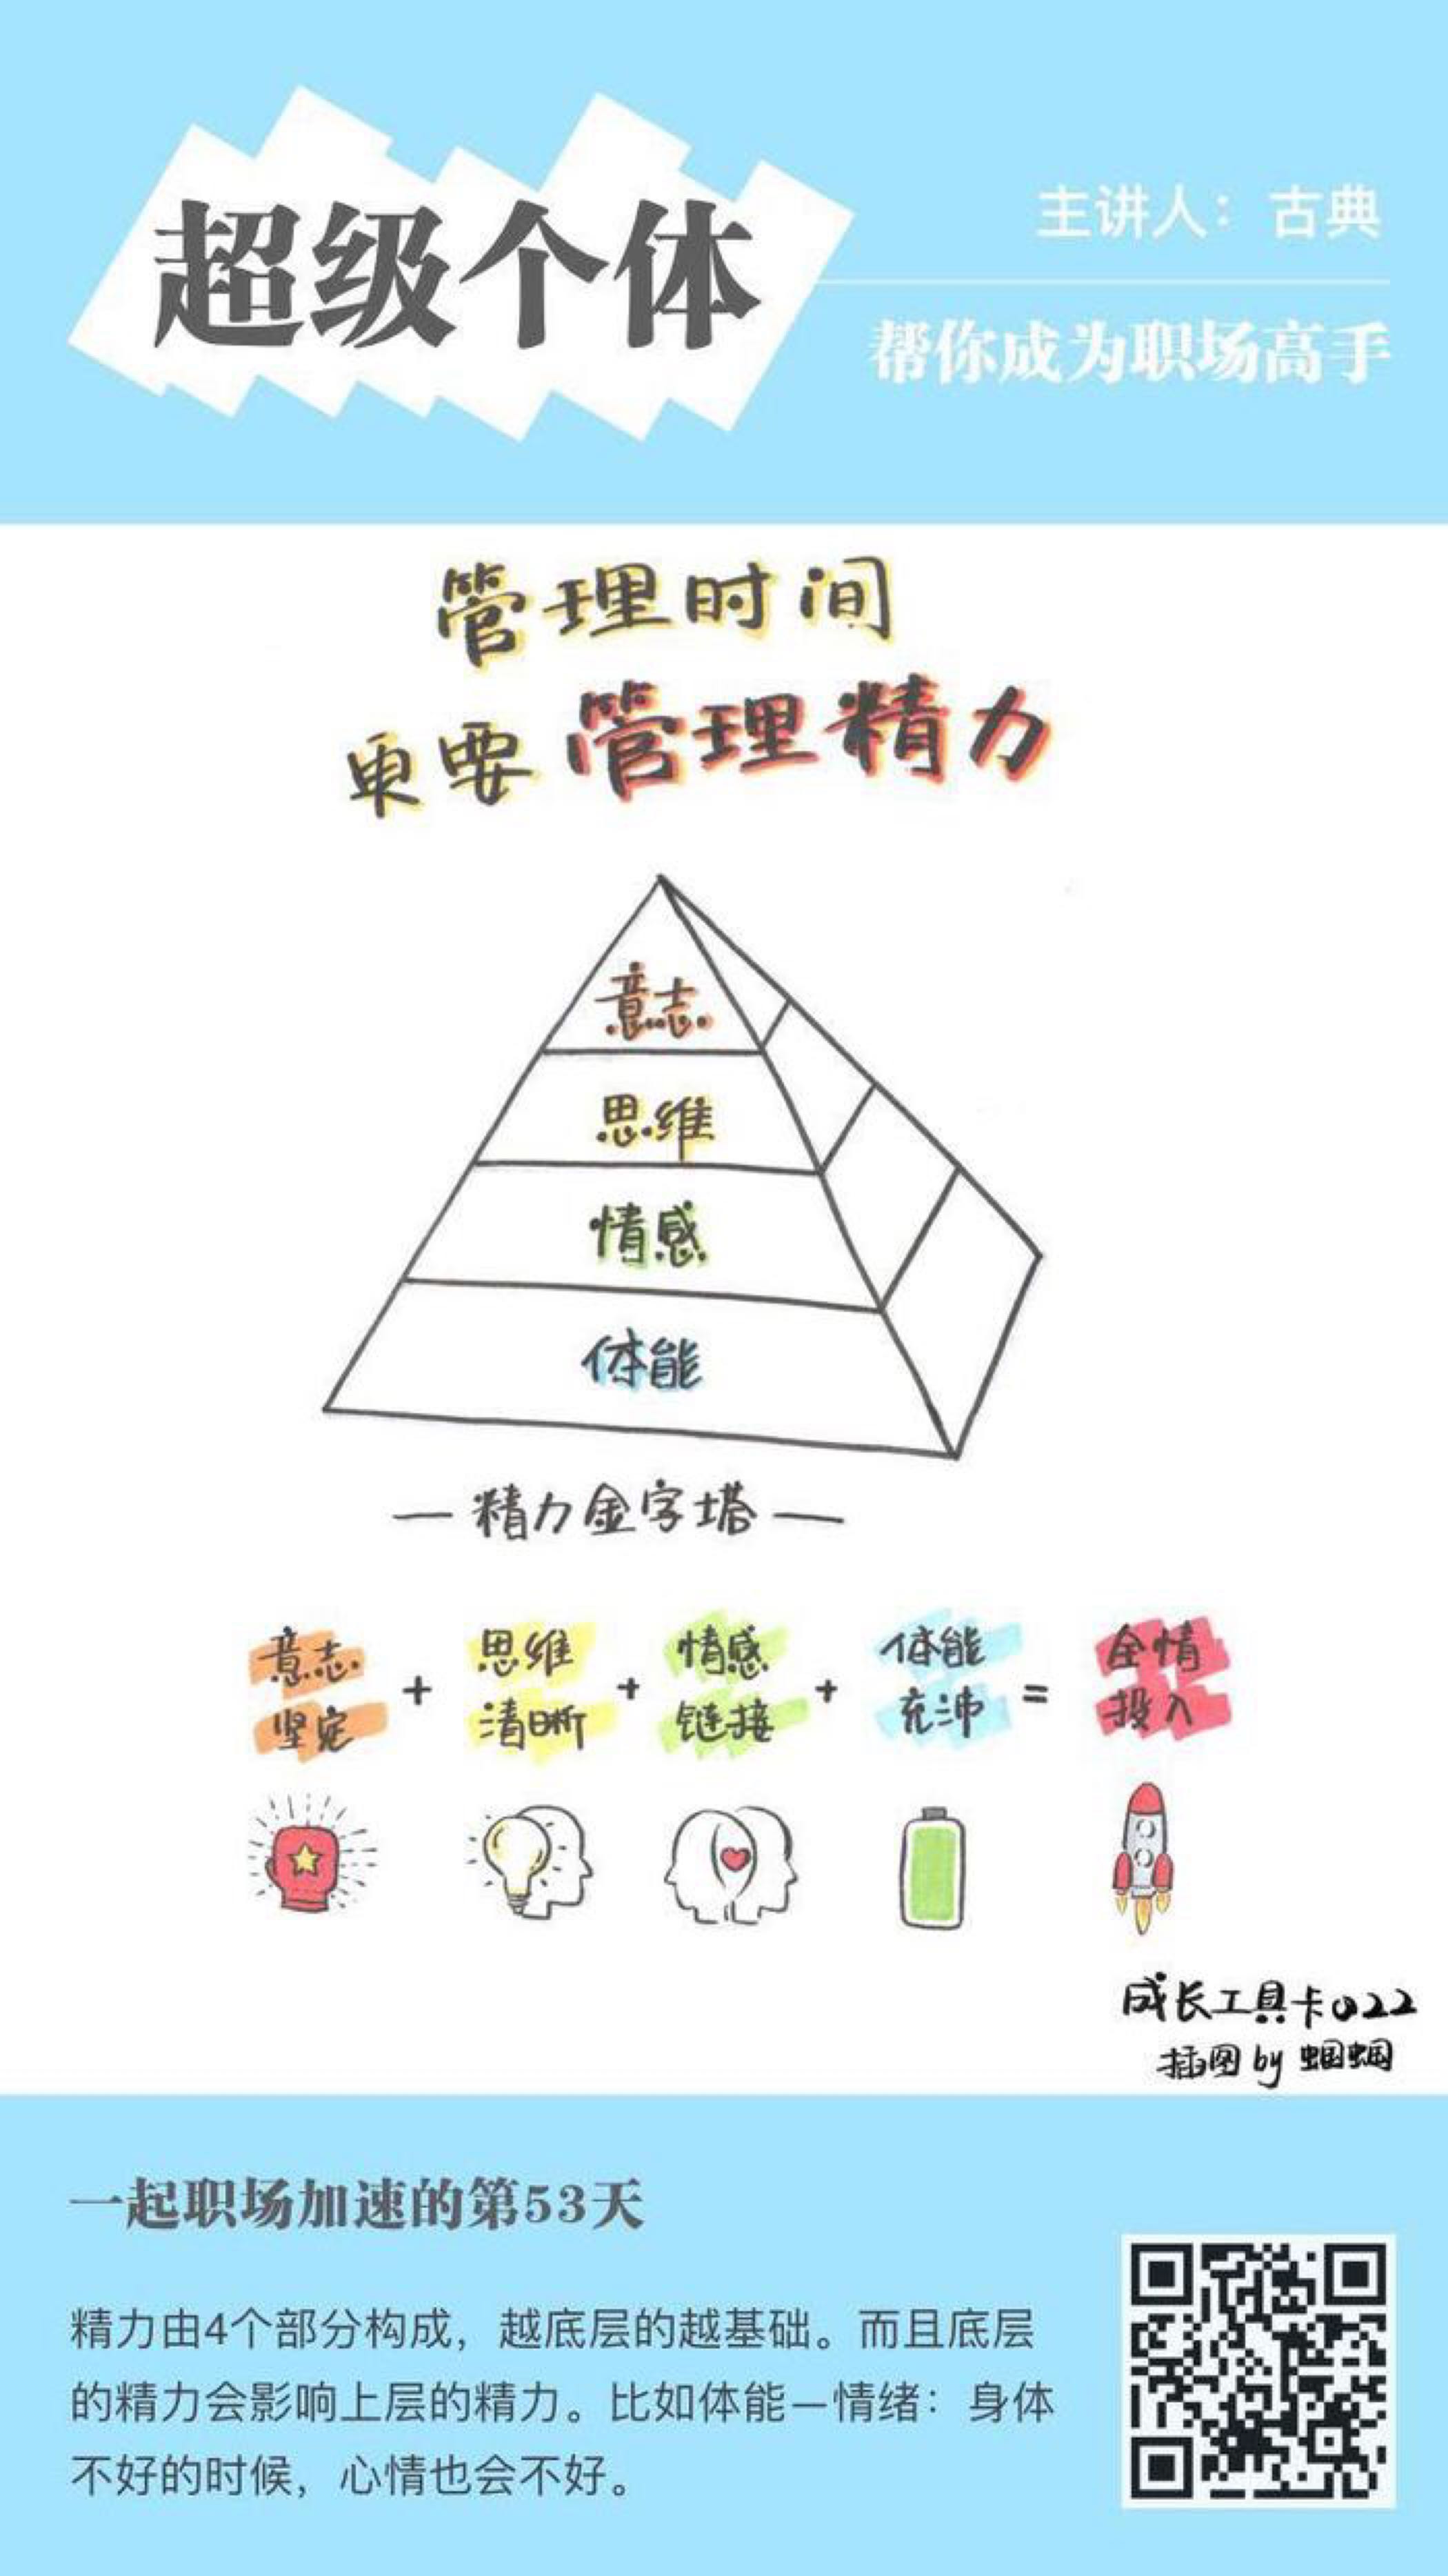 超级个体
主讲人：古典
帮你成为职场高手
管理时间
更要管理精力
意志
思维
情感
体能
—精力金字塔—
意志 + 思维 + 情感 + 体能 = 全情
坚定 清晰 链接 充沛 投入
成长工具卡022
插图by蝈蝈
一起职场加速的第53天
精力由4个部分构成，越底层的越基础。而且底层
的精力会影响上层的精力。比如体能—情绪：身体
不好的时候，心情也会不好。